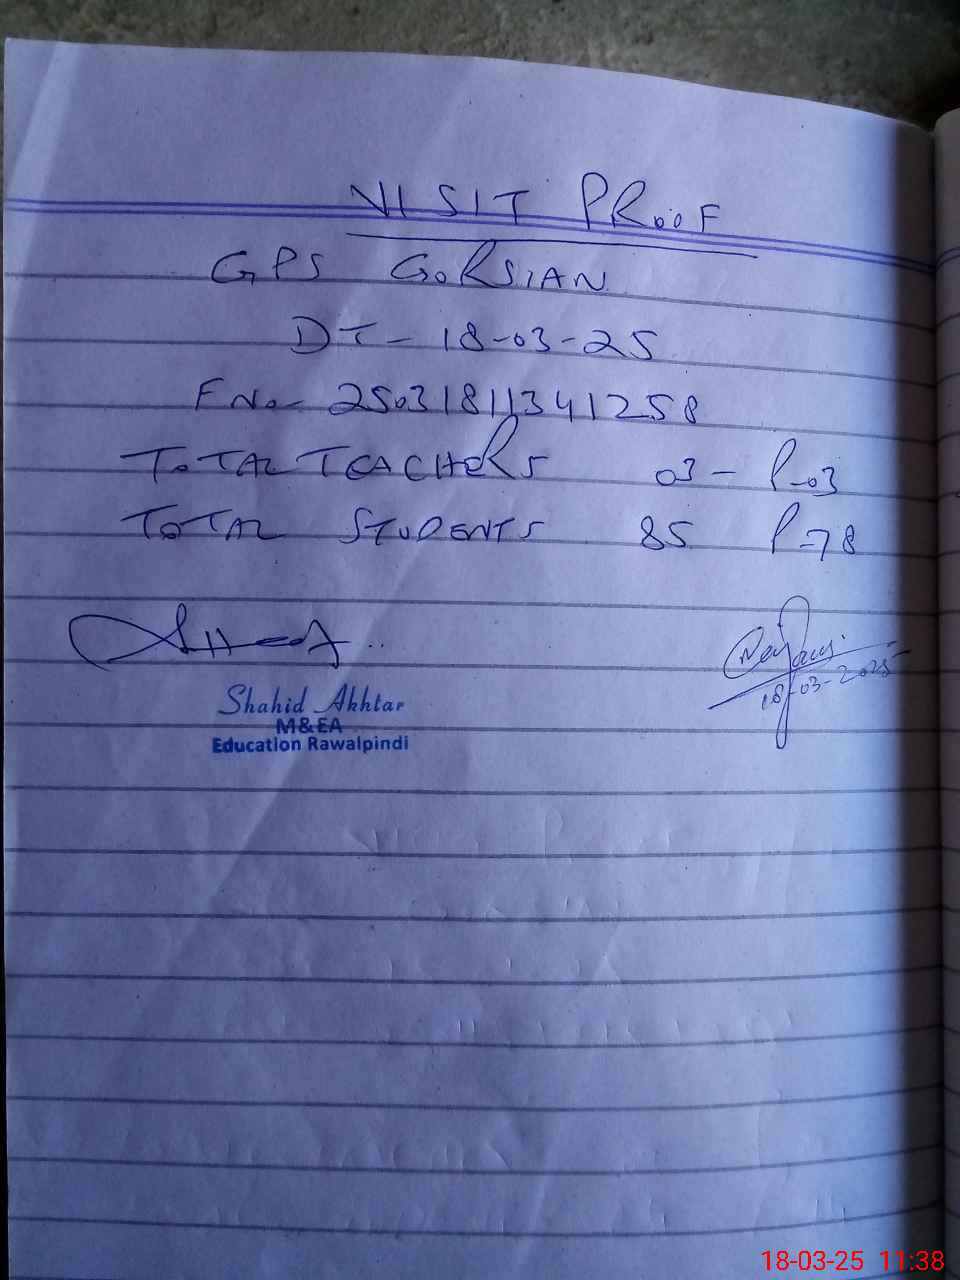 VISIT PROOF
GPS GORSIAN
DT - 18-03-25
F No- 25031811341258
TOTAL TEACHERS 03 - P-03
TOTAL STUDENTS 85 P-78
18-03-2025
Shahid Akhtar
M&EA
Education Rawalpindi
18-03-25 11:38